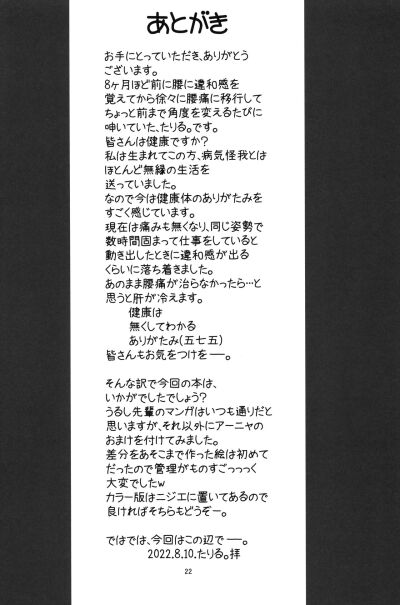 あとがき
お手にとっていただき、ありがとう
ございます。
8ヶ月ほど前に腰に違和感を
覚えてから徐々に腰痛に移行して
ちょっと前まで角度を変えるたびに
呻いていた、たりる。です。
皆さんは健康ですか?
私は生まれてこの方、病気怪我とは
ほとんど無縁の生活を
送っていました。
なので今は健康体のありがたみを
すごく感じています。
現在は痛みも無くなり、同じ姿勢で
数時間固まって仕事をしていると
動き出したときに違和感が出る
くらいに落ち着きました。
あのまま腰痛が治らなかったら…と
思うと肝が冷えます。
健康は
無くしてわかる
ありがたみ(五七五)
皆さんもお気をつけを──。
そんな訳で今回の本は、
いかがでしたでしょう?
うるし先輩のマンガはいつも通りだと
思いますが、それ以外にアーニャの
おまけを付けてみました。
差分をあそこまで作った絵は初めて
だったので管理がものすごっっっく
大変でしたw
カラー版はニジエに置いてあるので
良ければそちらもどうぞー。
ではでは、今回はこの辺で──。
2022.8.10.たりる。拝
22